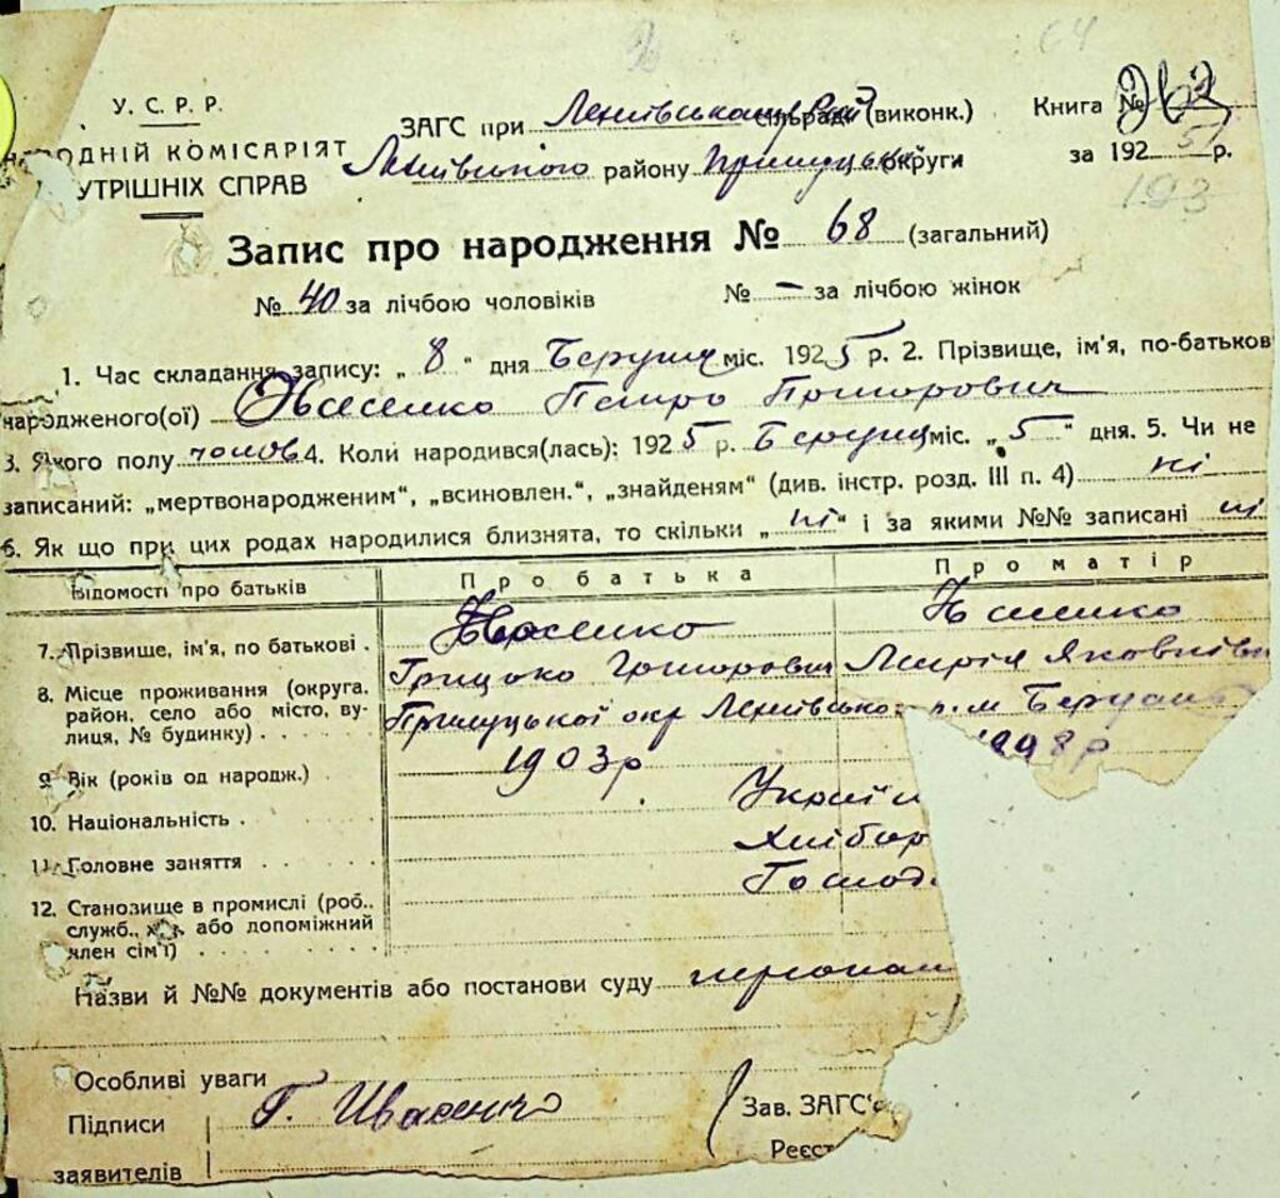 64
У. С. Р. Р.
НАРОДНІЙ КОМІСАРІЯТ
УТРІШНІХ СПРАВ
ЗАГС при сільраді (виконк.)
Книга №
району Прилуцької округи
за 192 5 р.
193
Запис про народження № 68 (загальний)
№ 40 за лічбою чоловіків № – за лічбою жінок
1. Час складання запису: „ 8 “ дня міс. 192 5 р. 2. Прізвище, ім'я, по-батьков
народженого(ої) Ивасенко Петро Григорович
3. Якого полу чолов 4. Коли народився(лась): 192 5 р. міс. „ 5 “ дня. 5. Чи не
записаний: „мертвонародженим“, „всиновлен.“, „знайденям“ (див. інстр. розд. III п. 4) ні
6. Як що при цих родах народилися близнята, то скільки „ ні “ і за якими №№ записані ні
Відомості про батьків
Про батька
Про матір
7. Прізвище, ім'я, по батькові .
Ивасенко
Грицько Григорович
Марія Яковлівн
8. Місце проживання (округа,
район, село або місто, ву-
лиця, № будинку) . . . . .
Прилуцької окр
9. Вік (років од народж.)
1903р
1898р
10. Національність .
Україн
11. Головне заняття . . . . .
Хлібор
12. Становище в промислі (роб.,
служб., х або допоміжний
член сім'ї) . . . . . . .
Господ.
Назви й №№ документів або постанови суду
Особливі уваги
Підписи
заявителів
Г. Ивасенко
Зав. ЗАГС'о
Реєст